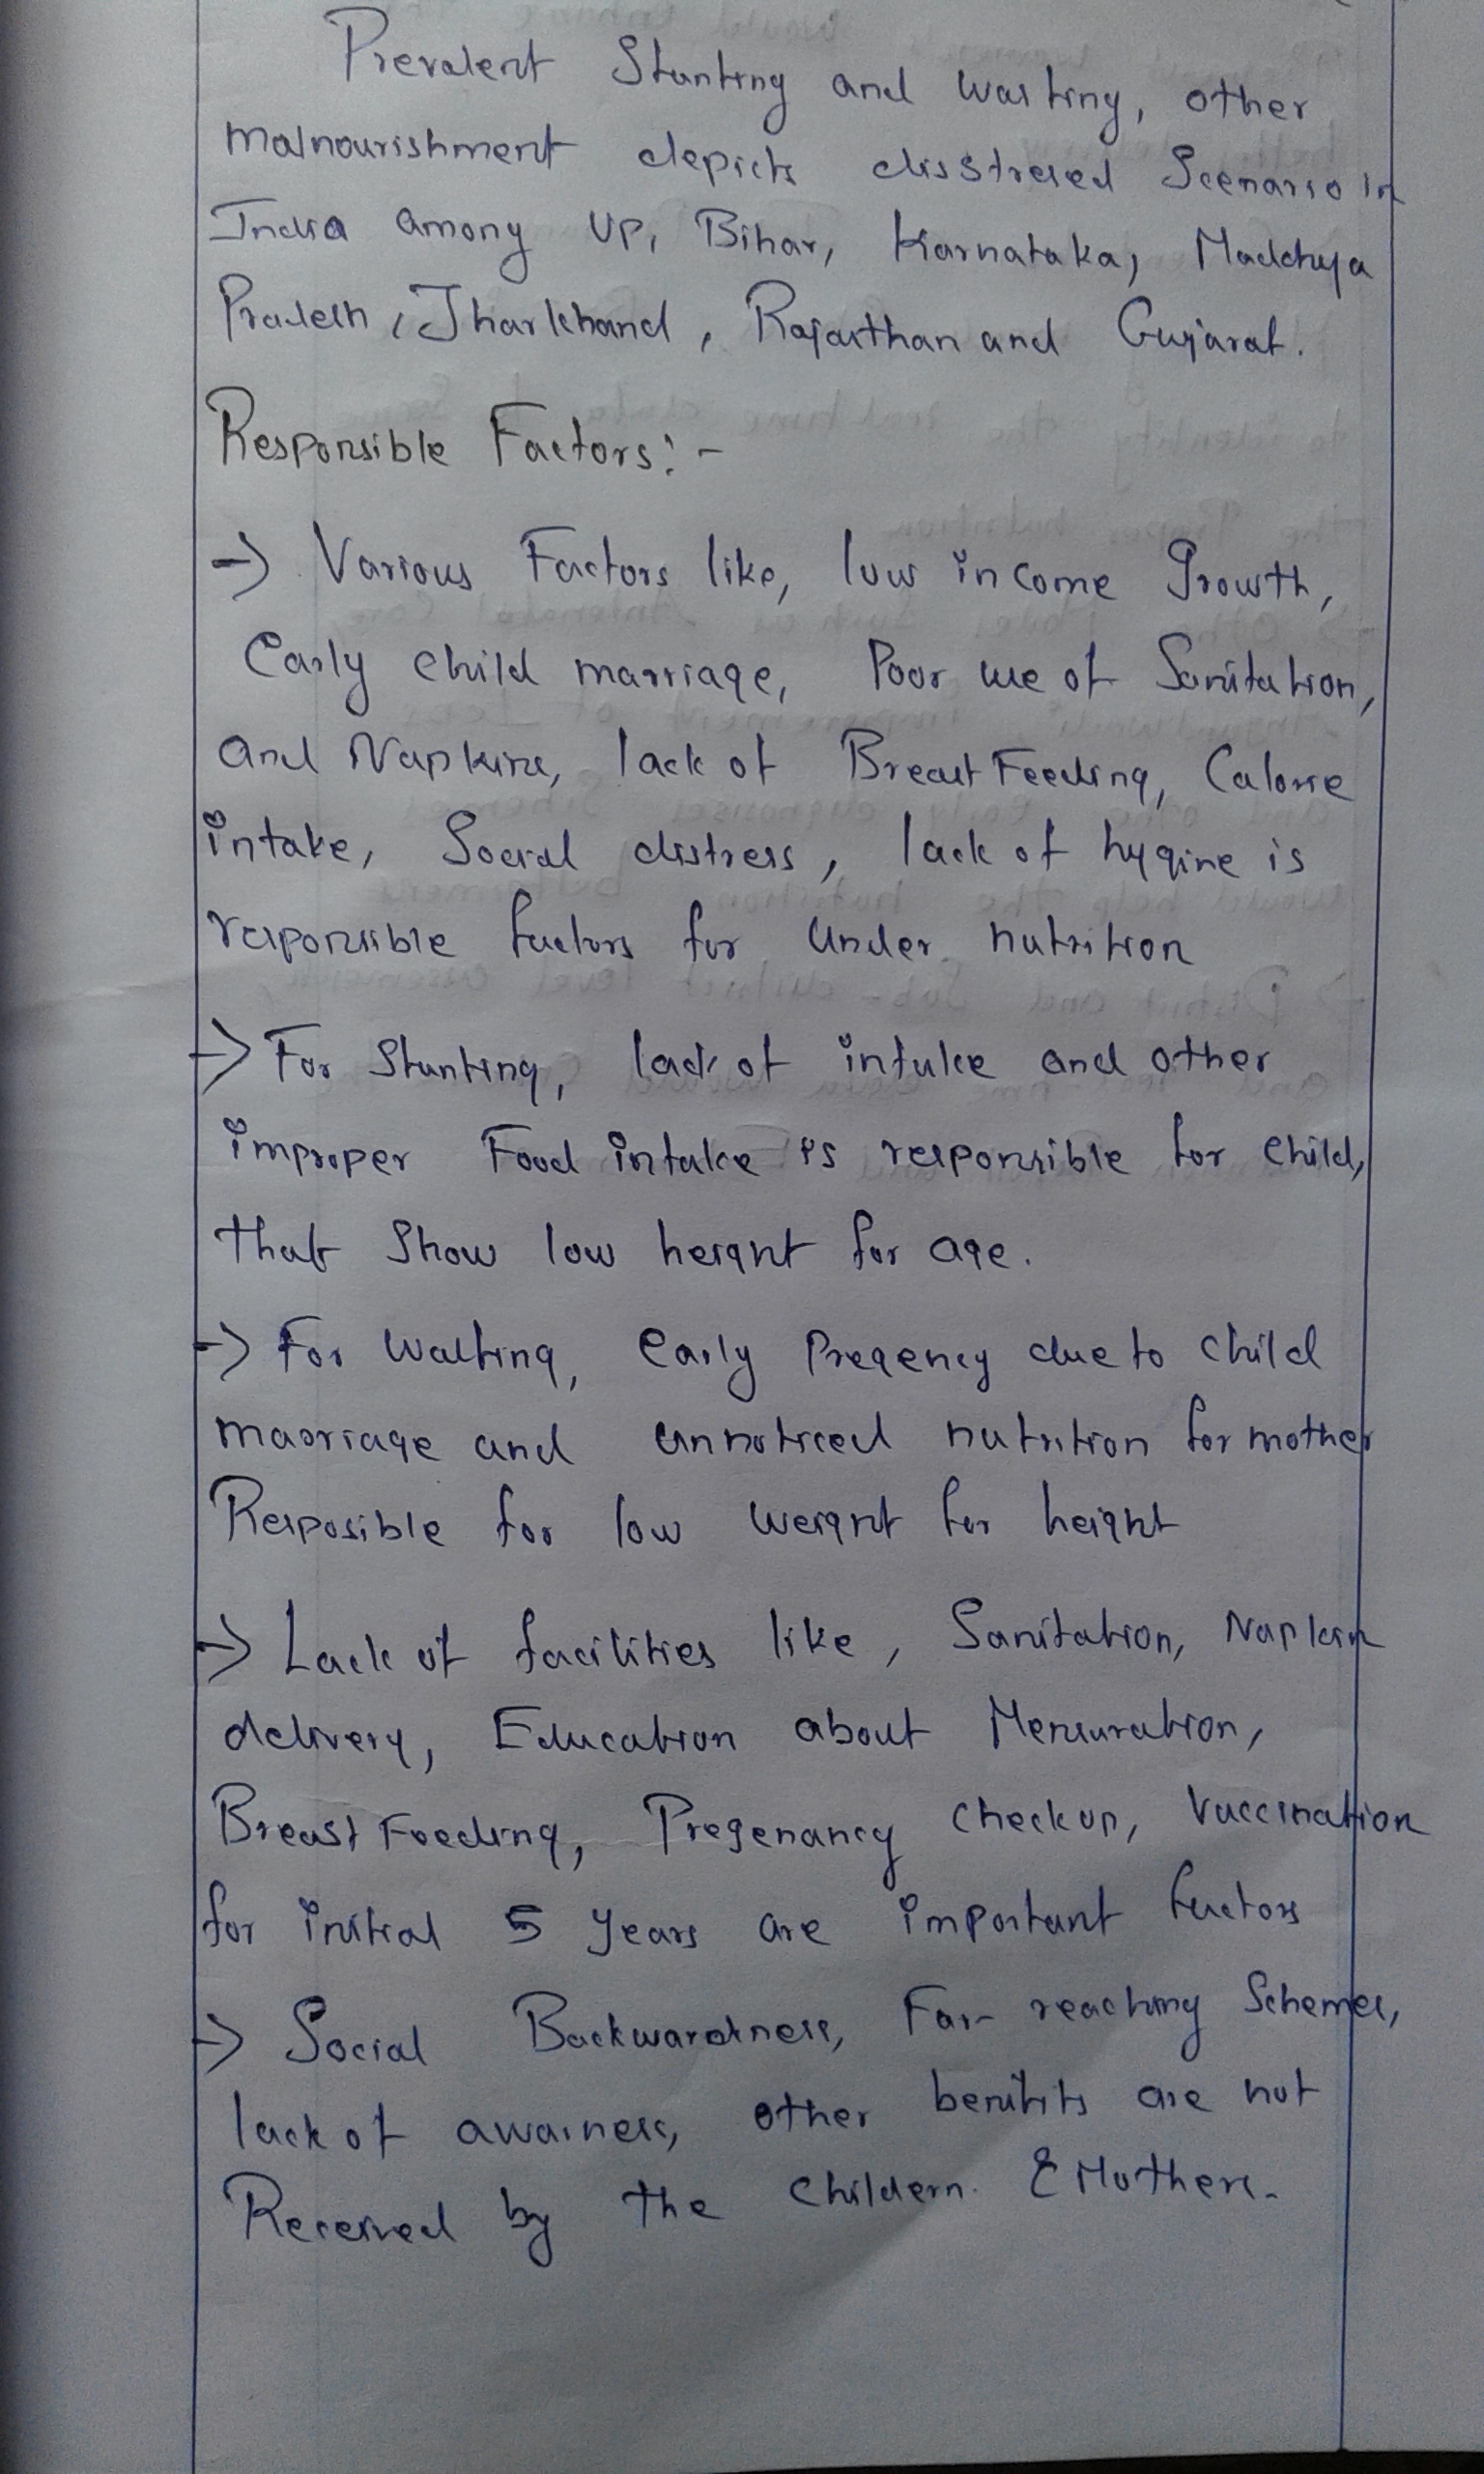 Prevalent Stunting and wasting, other
malnourishment depicts disstresed Scenario in
India among UP, Bihar, Karnataka, Madchya
Pradesh, Jharkhand, Rajasthan and Gujarat.
Responsible Factors:-
-> Various Factors like, low income Growth,
Early child marriage, Poor use of Sanitation,
and Napkins, lack of Breast Feeding, Calorie
intake, Social distress, lack of hygine is
responsible factors for Under nutrition
-> For Stunting, lack of intake and other
improper Food intake is responsible for child,
that Show low height for age.
-> For Wasting, Early Pregency due to child
marriage and unnoticed nutrition for mother
Resposible for low weight for height
-> Lack of facilities like, Sanitation, Napkin
delivery, Education about Mensuration,
Breast Feeding, Pregenancy checkup, Vaccination
for initial 5 years are important factors
-> Social Backwardness, Far-reaching Schemes,
lack of awarness, other benifits are not
Received by the Childern. & Mothers.